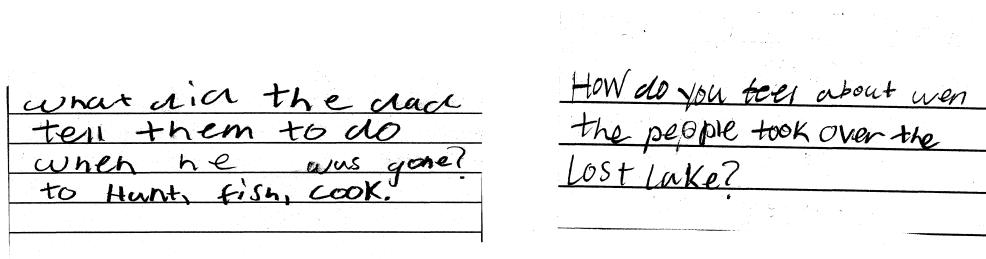 what did the dad
tell them to do
when he was gone?
to Hunt, fish, cook.
How do you feel about wen
the people took over the
Lost Lake?